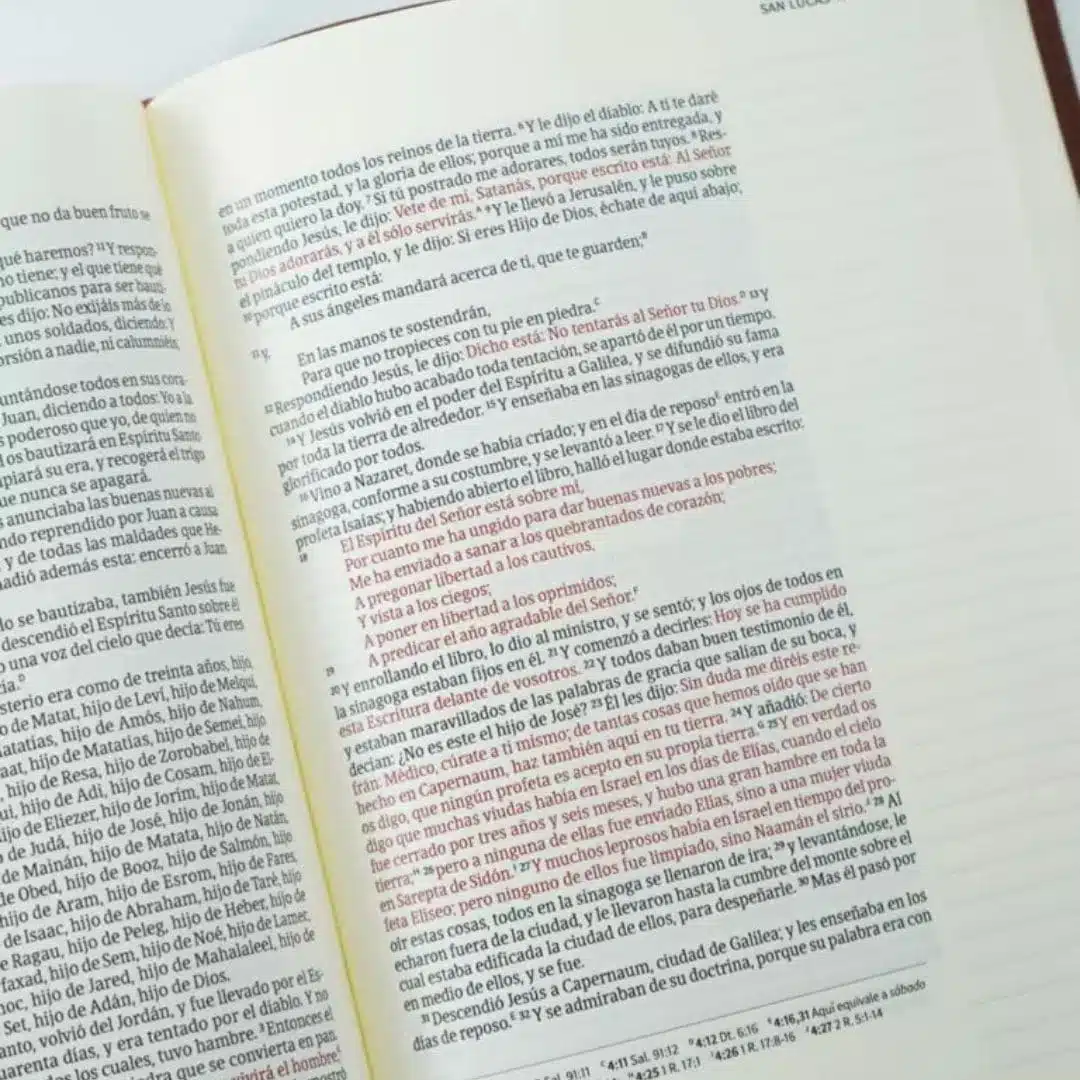 que no da buen fruto se
qué haremos? ¹¹Y respon-
no tiene; y el que tiene qué
publicanos para ser bauti-
es dijo: No exijáis más de lo
unos soldados, diciendo: Y
orsión a nadie, ni calumniéis;
untándose todos en sus cora-
Juan, diciendo a todos: Yo a la
s poderoso que yo, de quien no
os bautizará en Espíritu Santo
piará su era, y recogerá el trigo
ue nunca se apagará.
anunciaba las buenas nuevas al
ndo reprendido por Juan a causa
y de todas las maldades que He-
adió además esta: encerró a Juan
lo se bautizaba, también Jesús fue
descendió el Espíritu Santo sobre él
o una voz del cielo que decía: Tú eres
cia.ᴰ
sterio era como de treinta años, hijo,
o de Matat, hijo de Leví, hijo de Melqui,
atatías, hijo de Amós, hijo de Nahum,
aat, hijo de Matatías, hijo de Semei, hijo
, hijo de Resa, hijo de Zorobabel, hijo de
ui, hijo de Adi, hijo de Cosam, hijo de El-
ijo de Eliezer, hijo de Jorim, hijo de Matat,
de Judá, hijo de José, hijo de Jonán, hijo
de Mainán, hijo de Matata, hijo de Natán,
de Obed, hijo de Booz, hijo de Salmón, hijo
hijo de Aram, hijo de Esrom, hijo de Fares,
de Isaac, hijo de Abraham, hijo de Taré, hijo
e Ragau, hijo de Peleg, hijo de Heber, hijo de
faxad, hijo de Sem, hijo de Noé, hijo de Lamec,
oc, hijo de Jared, hijo de Mahalaleel, hijo de
Set, hijo de Adán, hijo de Dios.
anto, volvió del Jordán, y fue llevado por el Es-
uarenta días, y era tentado por el diablo. Y no
dos los cuales, tuvo hambre. ³Entonces el
dra que se convierta en pan.
vivirá el hombre,
mostró
SAN LUCAS
en un momento todos los reinos de la tierra. ⁶Y le dijo el diablo: A ti te daré
toda esta potestad, y la gloria de ellos; porque a mí me ha sido entregada, y
a quien quiero la doy. ⁷ Si tú postrado me adorares, todos serán tuyos. ⁸ Res-
pondiendo Jesús, le dijo: Vete de mí, Satanás, porque escrito está: Al Señor
tu Dios adorarás, y a él sólo servirás.ᴬ ⁹Y le llevó a Jerusalén, y le puso sobre
el pináculo del templo, y le dijo: Si eres Hijo de Dios, échate de aquí abajo;
¹⁰porque escrito está:
A sus ángeles mandará acerca de ti, que te guarden;ᴮ
¹¹ y,
En las manos te sostendrán,
Para que no tropieces con tu pie en piedra.ᶜ
¹²Respondiendo Jesús, le dijo: Dicho está: No tentarás al Señor tu Dios.ᴰ ¹³Y
cuando el diablo hubo acabado toda tentación, se apartó de él por un tiempo.
¹⁴Y Jesús volvió en el poder del Espíritu a Galilea, y se difundió su fama
por toda la tierra de alrededor. ¹⁵ Y enseñaba en las sinagogas de ellos, y era
glorificado por todos.
¹⁶ Vino a Nazaret, donde se había criado; y en el día de reposoᴱ entró en la
sinagoga, conforme a su costumbre, y se levantó a leer. ¹⁷ Y se le dio el libro del
profeta Isaías; y habiendo abierto el libro, halló el lugar donde estaba escrito:
¹⁸ El Espíritu del Señor está sobre mí,
Por cuanto me ha ungido para dar buenas nuevas a los pobres;
Me ha enviado a sanar a los quebrantados de corazón;
A pregonar libertad a los cautivos,
Y vista a los ciegos;
A poner en libertad a los oprimidos;
¹⁹ A predicar el año agradable del Señor.ꟳ
²⁰Y enrollando el libro, lo dio al ministro, y se sentó; y los ojos de todos en
la sinagoga estaban fijos en él. ²¹ Y comenzó a decirles: Hoy se ha cumplido
esta Escritura delante de vosotros. ²² Y todos daban buen testimonio de él,
y estaban maravillados de las palabras de gracia que salían de su boca, y
decían: ¿No es este el hijo de José? ²³ Él les dijo: Sin duda me diréis este re-
frán: Médico, cúrate a ti mismo; de tantas cosas que hemos oído que se han
hecho en Capernaum, haz también aquí en tu tierra. ²⁴ Y añadió: De cierto
os digo, que ningún profeta es acepto en su propia tierra.ᴳ ²⁵ Y en verdad os
digo que muchas viudas había en Israel en los días de Elías, cuando el cielo
fue cerrado por tres años y seis meses, y hubo una gran hambre en toda la
tierra;ᴴ ²⁶ pero a ninguna de ellas fue enviado Elías, sino a una mujer viuda
en Sarepta de Sidón.ᴵ ²⁷Y muchos leprosos había en Israel en tiempo del pro-
feta Eliseo; pero ninguno de ellos fue limpiado, sino Naamán el sirio.ᴶ ²⁸ Al
oír estas cosas, todos en la sinagoga se llenaron de ira; ²⁹ y levantándose, le
echaron fuera de la ciudad, y le llevaron hasta la cumbre del monte sobre el
cual estaba edificada la ciudad de ellos, para despeñarle. ³⁰ Mas él pasó por
en medio de ellos, y se fue.
³¹ Descendió Jesús a Capernaum, ciudad de Galilea; y les enseñaba en los
días de reposo.ᴱ ³² Y se admiraban de su doctrina, porque su palabra era con
Sal. 91:11 ᶜ4:11 Sal. 91:12 ᴰ4:12 Dt. 6:16 ᴱ4:16,31 Aquí equivale a sábado
ᴴ4:25 1 R. 17:1 ᴵ4:26 1 R. 17:8-16 ᴶ4:27 2 R. 5:1-14